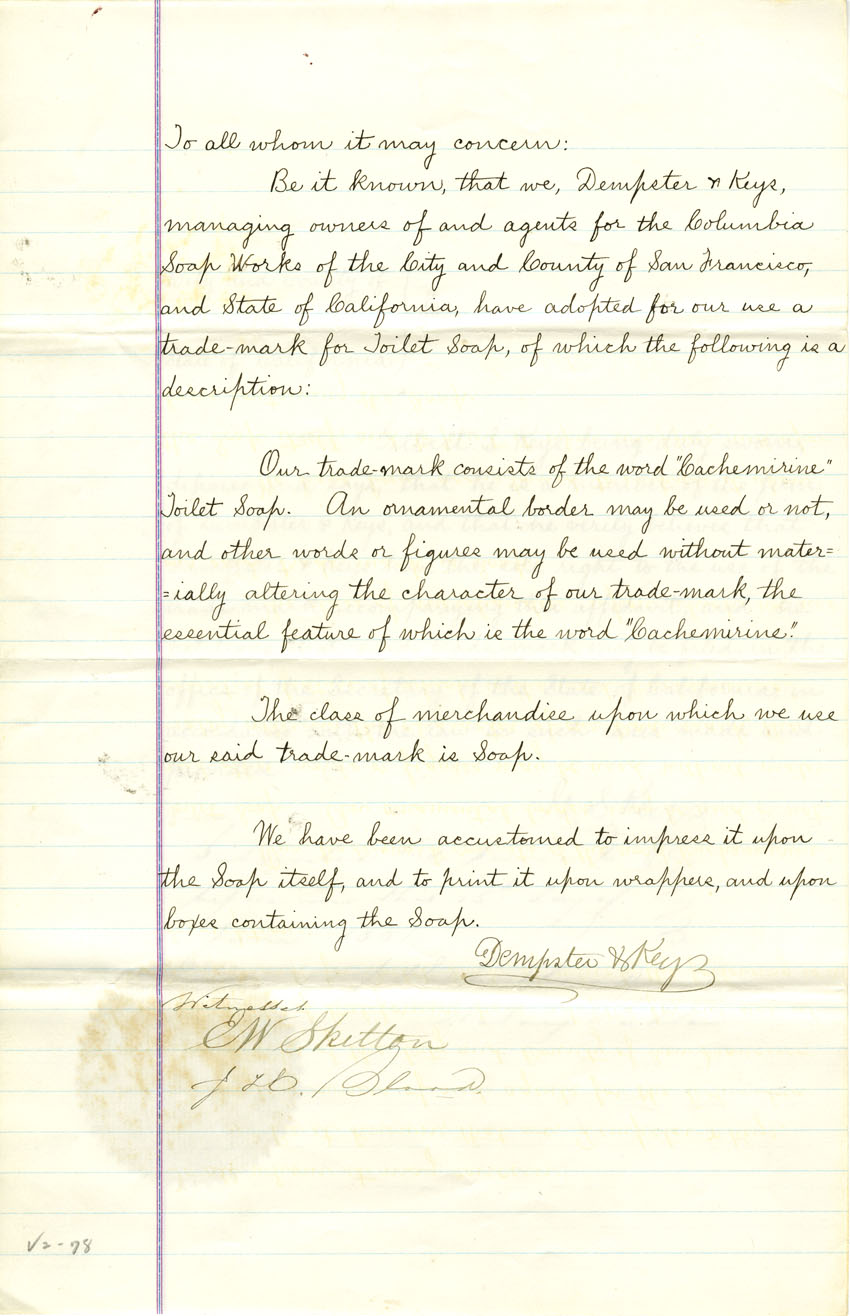 To all whom it may concern:
Be it known, that we, Dempster & Keys,
managing owners of and agents for the Columbia
Soap Works of the City and County of San Francisco,
and State of California, have adopted for our use a
trade-mark for Toilet Soap, of which the following is a
description:
Our trade-mark consists of the word "Cachemirine"
Toilet Soap. An ornamental border may be used or not,
and other words or figures may be used without mater=
=ially altering the character of our trade-mark, the
essential feature of which is the word "Cachemirine."
The class of merchandise upon which we use
our said trade-mark is Soap.
We have been accustomed to impress it upon
the Soap itself, and to print it upon wrappers, and upon
boxes containing the Soap.
Dempster & Keys
Witnesses
EW Sketton
V2-78